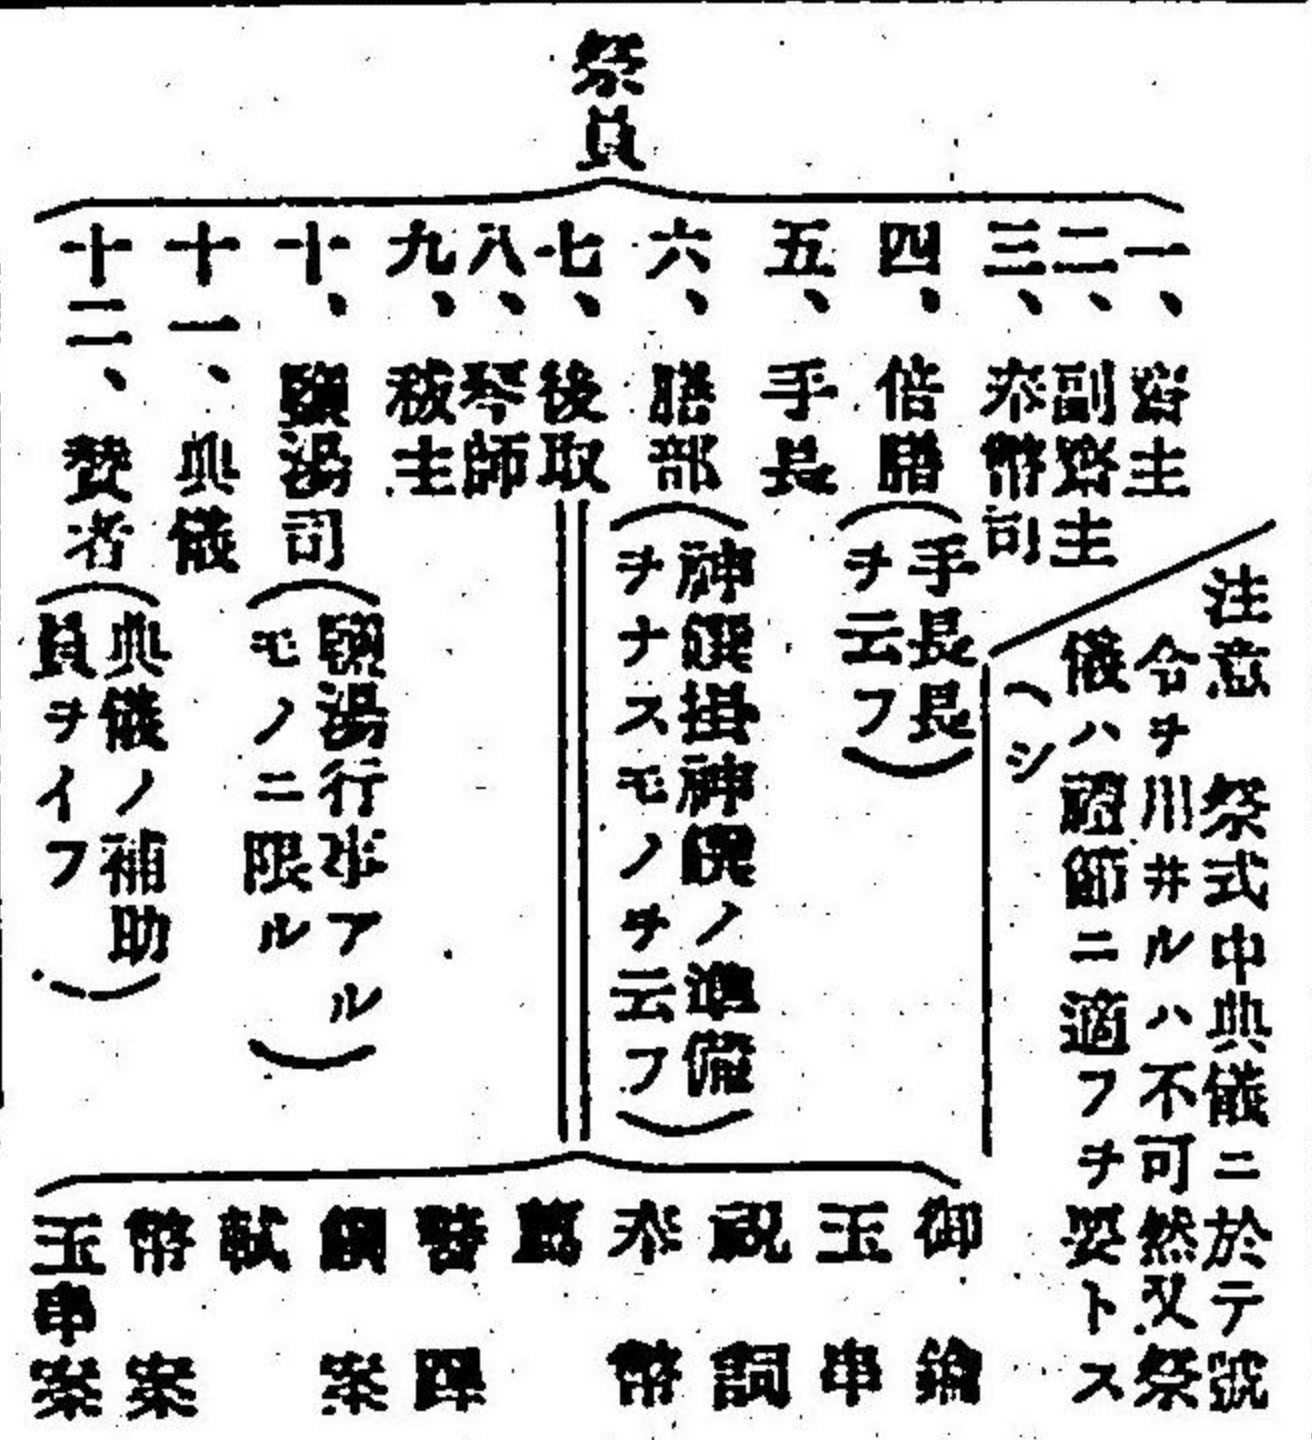 祭員
一、齋主
二、副齋主
三、奉幣司
四、倍膳(手長長
ヲ云フ)
五、手長
六、膳部(神饌掛神饌ノ準備
ヲナスモノヲ云フ)
七、後取
八、琴師
九、祓主
十、鹽湯司(鹽湯行事アル
モノニ限ル)
十一、典儀
十二、賛者(典儀ノ補助
員ヲイフ)
注意 祭式中典儀ニ於テ號
令ヲ用井ルハ不可然又祭
儀ハ禮節ニ適フヲ要トス
ヘシ
御鑰
玉串
祝詞
奉幣
薦
警蹕
饌案
軾
幣案
玉串案